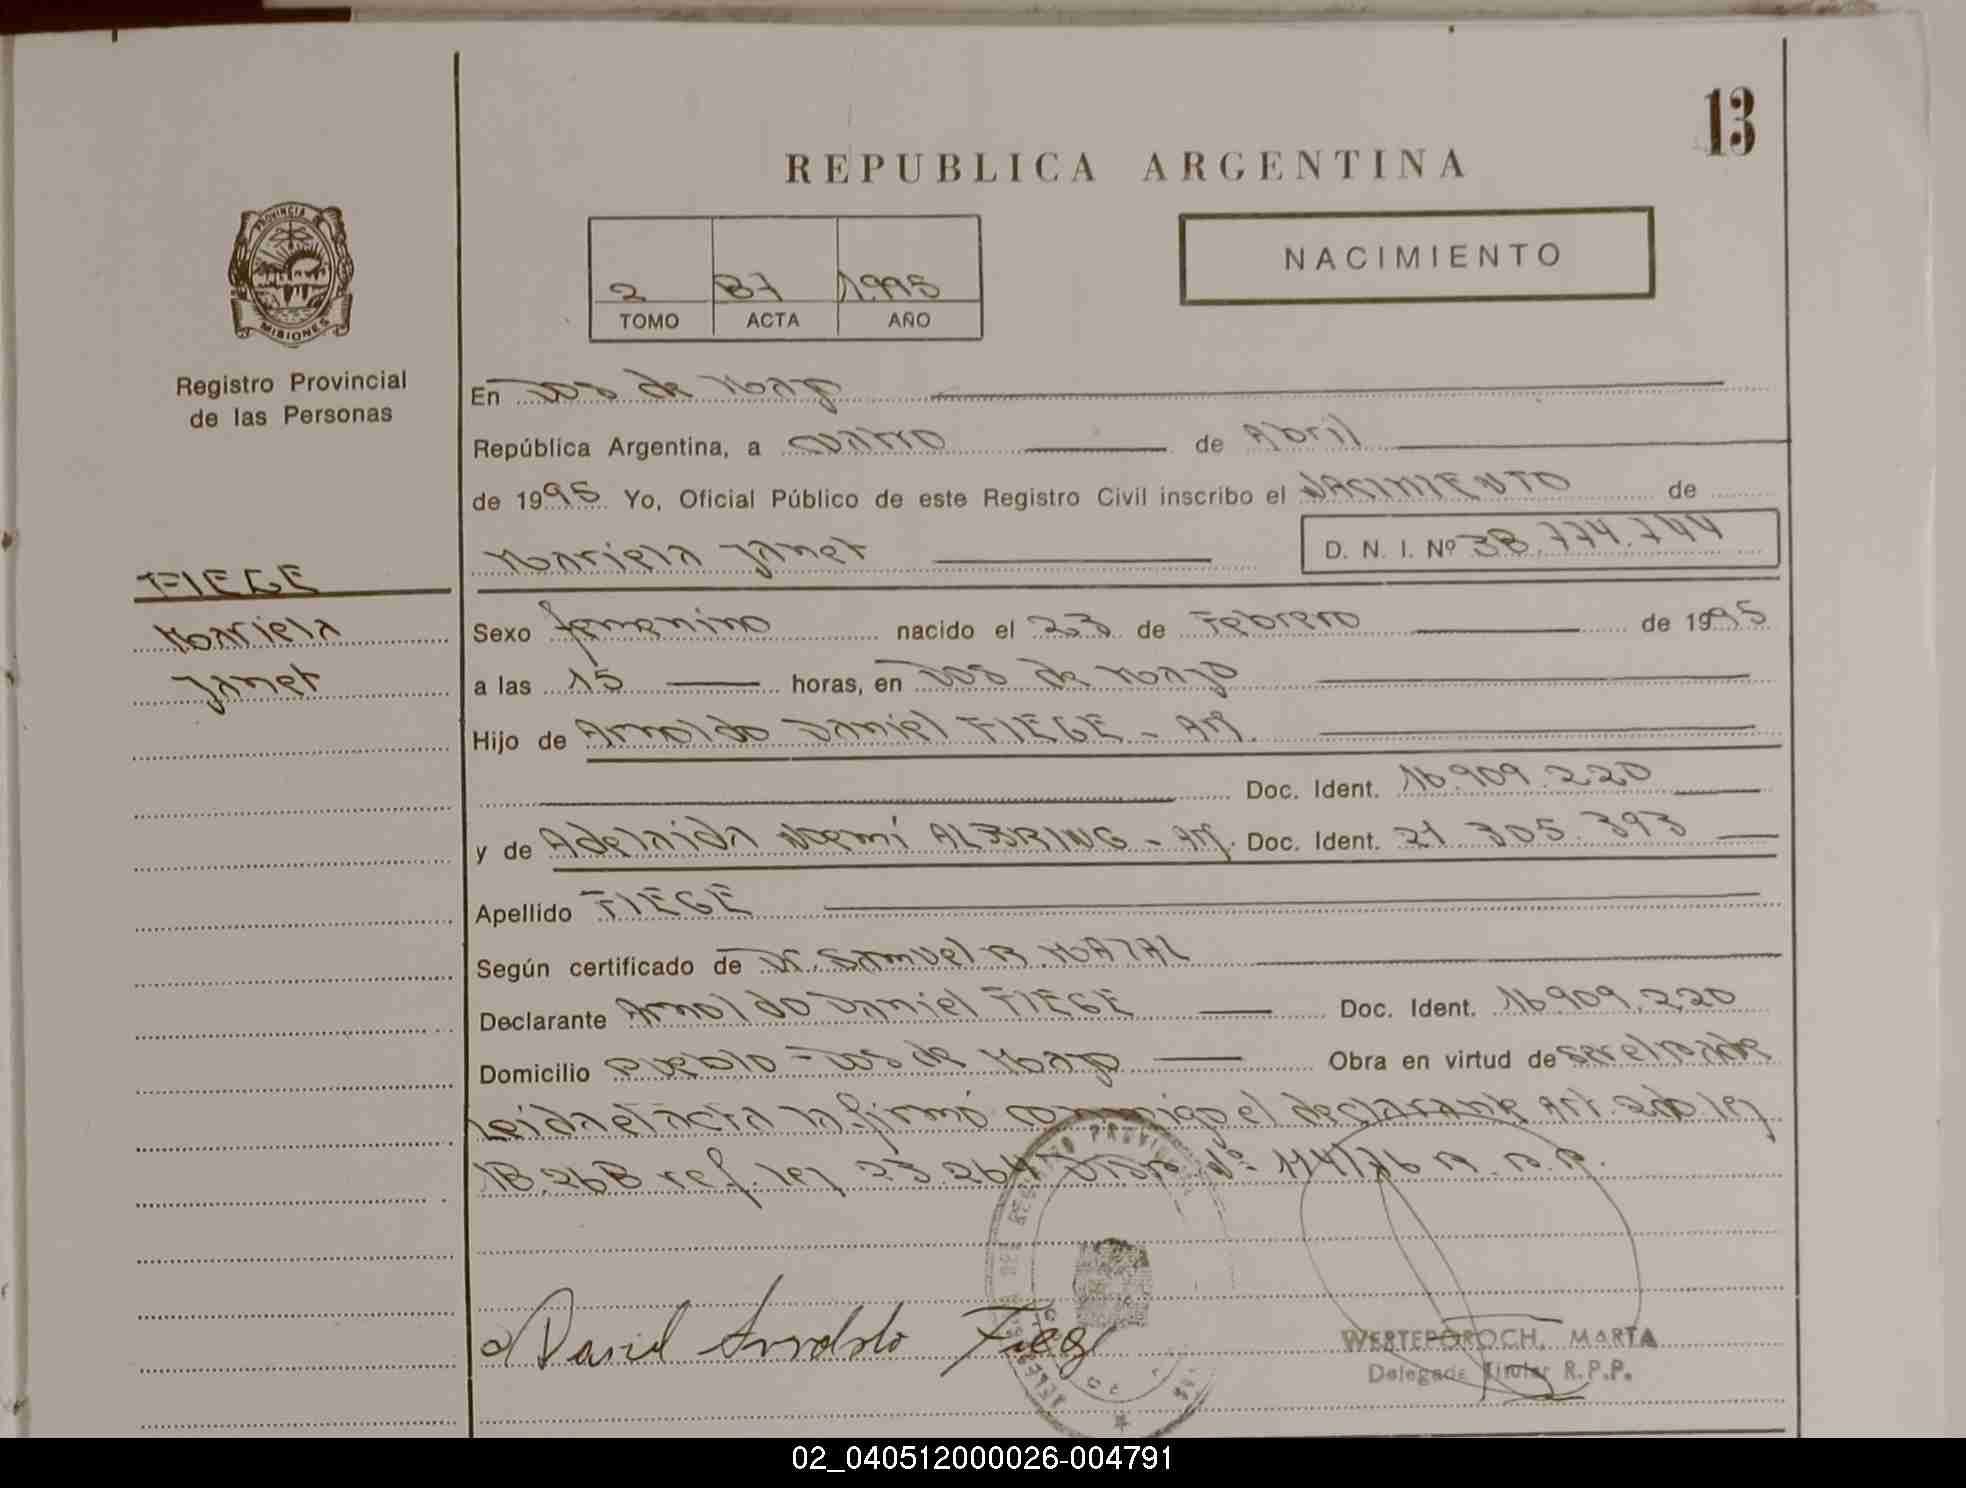 13
REPUBLICA ARGENTINA
NACIMIENTO
2 87 1.995
TOMO ACTA AÑO
PROVINCIA DE
MISIONES
Registro Provincial
de las Personas
FIEGE
Mariela
Janet
En Dos de Mayo
República Argentina, a cuatro de Abril
de 1995 Yo, Oficial Público de este Registro Civil inscribo el NACIMIENTO de
Mariela Janet D. N. I. Nº 38.774.744
Sexo femenino nacido el 23 de Febrero de 1995
a las 15 horas, en Dos de Mayo
Hijo de Arnoldo Daniel FIEGE - Arg.
Doc. Ident. 16.909.220
y de Adelaida Noemí ALBRING - Arg. Doc. Ident. 21.305.393
Apellido FIEGE
Según certificado de Dr. Samuel R. MAZAL
Declarante Arnoldo Daniel FIEGE Doc. Ident. 16.909.220
Domicilio Pueblo - Dos de Mayo Obra en virtud de ser el padre
Leida el acta la firmó conmigo el declarante Art. 2do ley
18.268 ref. ley 23.264 Disp. Nº 114/76 R.P.P.
Daniel Arnoldo Fiege
WERTEPOROCH, MARTA
Delegada Titular R.P.P.
02_040512000026-004791